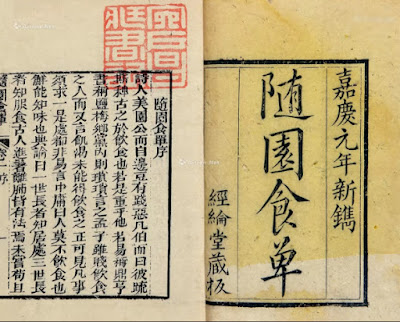 嘉慶元年新鐫
随園食单
經綸堂蔵板
隨園食單序
詩人美周公而曰籩豆有踐惡凡伯而曰彼疏
斯稗古之於飲食也若是重乎他若易稱鼎亨
書稱鹽梅鄉黨內則瑣瑣言之孟子雖賤飲食
之人而又言飢渴未能得飲食之正可見凡事
須求一是處都非易言中庸曰人莫不飲食也
鮮能知味也典論曰一世長者知居處三世長
者知服食古人進鬐離肺皆有法焉未嘗苟且